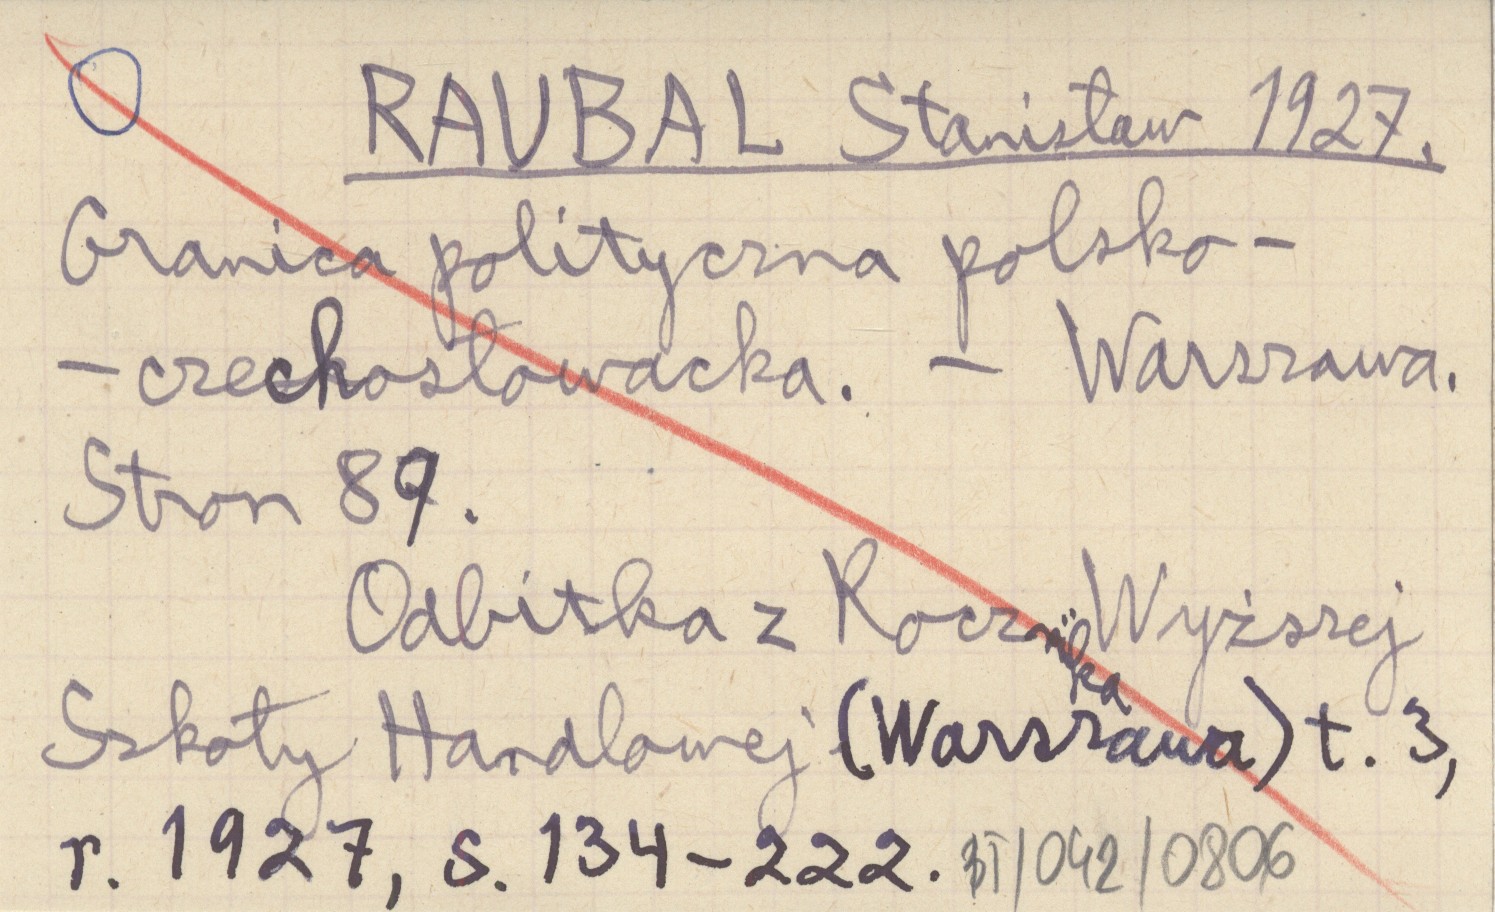 RAUBAL Stanisław 1927.
Granica polityczna polsko-
-czechosłowacka. - Warszawa.
Stron 89.
Odbitka z Rocznika Wyższej
Szkoły Handlowej (Warszawa) t. 3,
r. 1927, s. 134-222. BT/042/0806